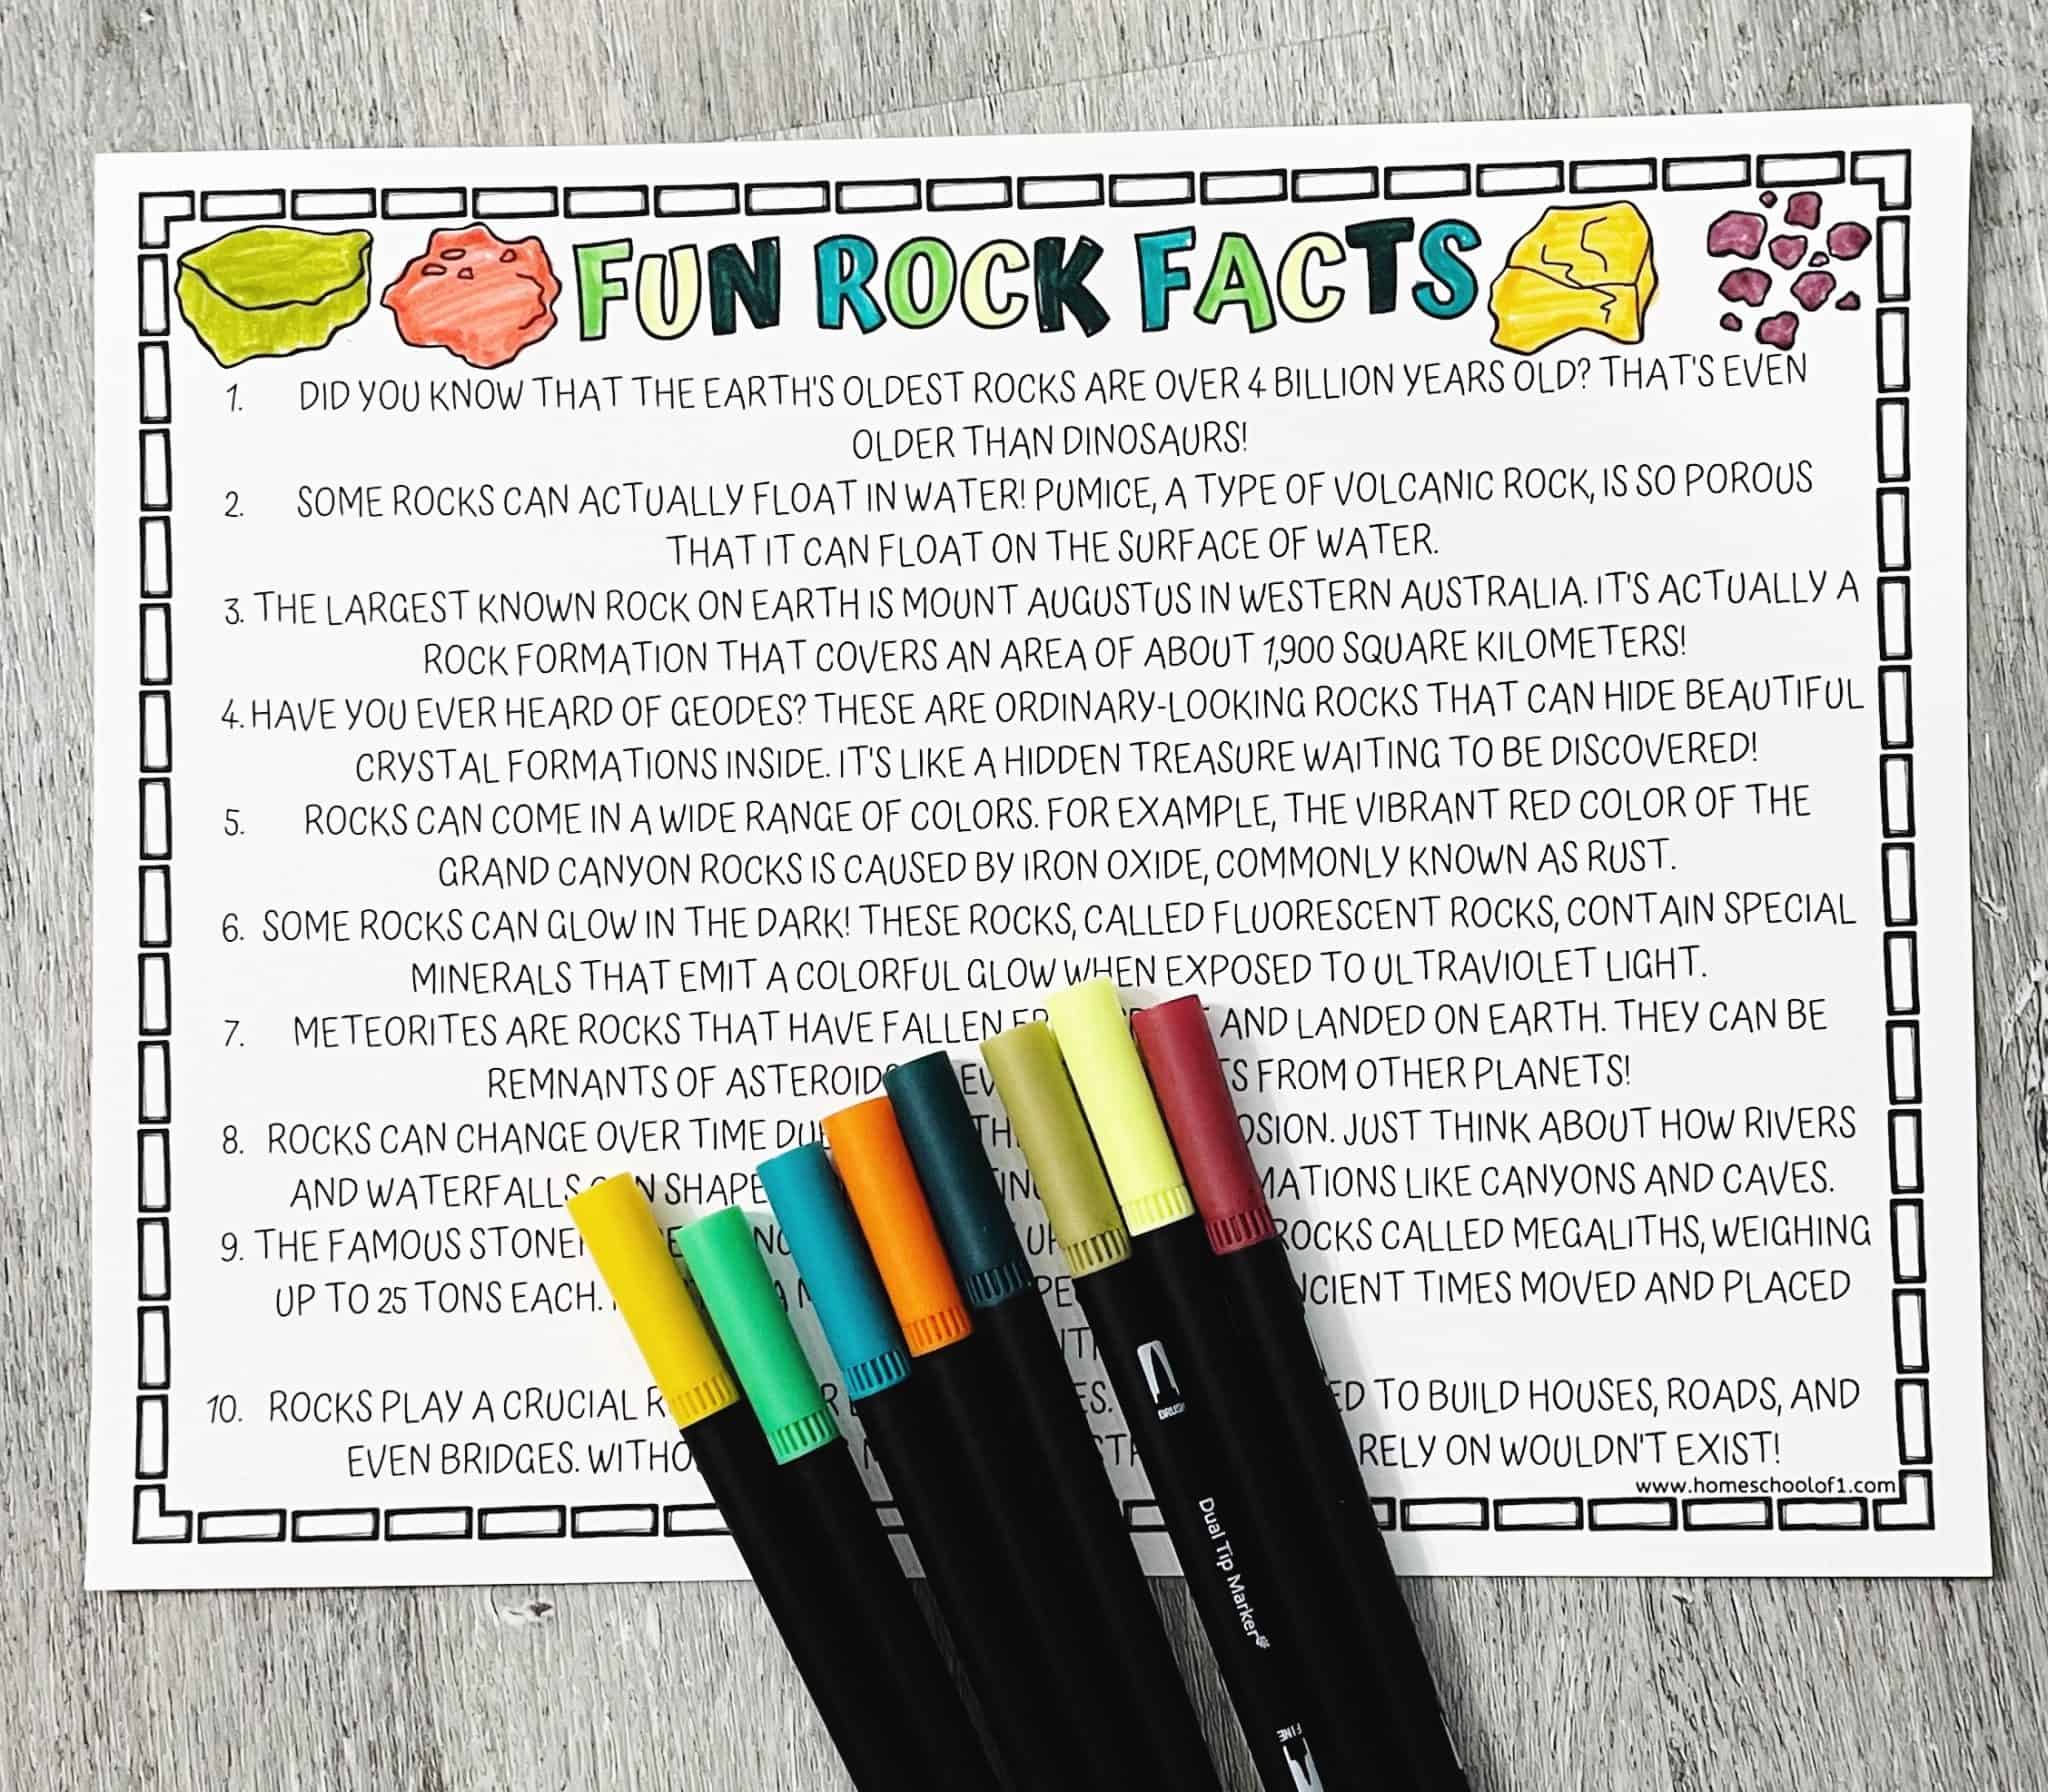 FUN ROCK FACTS
1. DID YOU KNOW THAT THE EARTH'S OLDEST ROCKS ARE OVER 4 BILLION YEARS OLD? THAT'S EVEN
OLDER THAN DINOSAURS!
2. SOME ROCKS CAN ACTUALLY FLOAT IN WATER! PUMICE, A TYPE OF VOLCANIC ROCK, IS SO POROUS
THAT IT CAN FLOAT ON THE SURFACE OF WATER.
3. THE LARGEST KNOWN ROCK ON EARTH IS MOUNT AUGUSTUS IN WESTERN AUSTRALIA. IT'S ACTUALLY A
ROCK FORMATION THAT COVERS AN AREA OF ABOUT 1,900 SQUARE KILOMETERS!
4. HAVE YOU EVER HEARD OF GEODES? THESE ARE ORDINARY-LOOKING ROCKS THAT CAN HIDE BEAUTIFUL
CRYSTAL FORMATIONS INSIDE. IT'S LIKE A HIDDEN TREASURE WAITING TO BE DISCOVERED!
5. ROCKS CAN COME IN A WIDE RANGE OF COLORS. FOR EXAMPLE, THE VIBRANT RED COLOR OF THE
GRAND CANYON ROCKS IS CAUSED BY IRON OXIDE, COMMONLY KNOWN AS RUST.
6. SOME ROCKS CAN GLOW IN THE DARK! THESE ROCKS, CALLED FLUORESCENT ROCKS, CONTAIN SPECIAL
MINERALS THAT EMIT A COLORFUL GLOW WHEN EXPOSED TO ULTRAVIOLET LIGHT.
7. METEORITES ARE ROCKS THAT HAVE FALLEN AND LANDED ON EARTH. THEY CAN BE
REMNANTS OF ASTEROIDS FROM OTHER PLANETS!
8. ROCKS CAN CHANGE OVER TIME JUST THINK ABOUT HOW RIVERS
AND WATERFALLS CAN SHAPE LIKE CANYONS AND CAVES.
9. THE FAMOUS ROCKS CALLED MEGALITHS, WEIGHING
UP TO 25 TONS EACH. ANCIENT TIMES MOVED AND PLACED
10. ROCKS PLAY A CRUCIAL TO BUILD HOUSES, ROADS, AND
EVEN BRIDGES. RELY ON WOULDN'T EXIST!
www.homeschoolof1.com
BRUSH
Dual Tip Marker
FINE